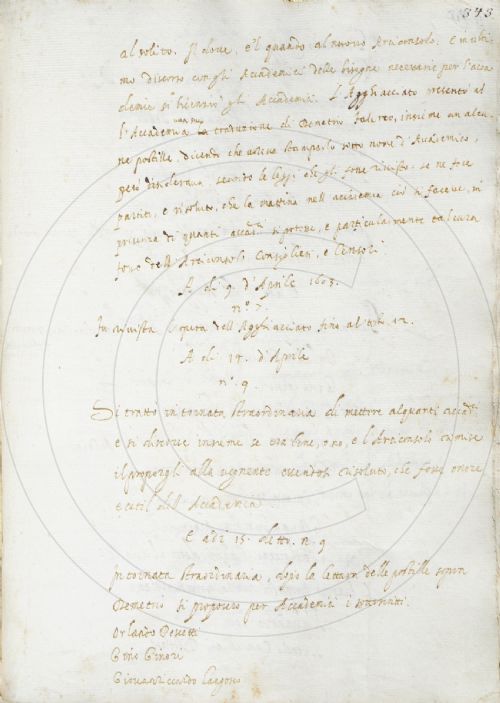 343
al solito. Il dove, e 'l quando al nuovo Arciconsolo. E in ulti-
mo discorso con gli Accademici delle bisogne necessarie per l'acca
demia si licenziò gli Accademici. L'Agghiacciato presentò al
l'Accademia una sua traduzione di Demetrio Falereo, insieme un alcu-
ne postille, dicendo che voleva stamparlo sotto nome d'Accademico,
però desiderava, secondo le leggi che gli fosse rivisto. se ne fece
partito, e risoluto, che la mattina nell'accademia ciò si facesse, in
presenza di quanti accad.ci si potesse, e particularmente
dell'Arciconsolo Consiglieri, e Censori
A dì 9 d'Aprile 1603.
n.º 7.
Fu rivista l'opera dell'Agghiacciato fino al 12.
A dì 14. d'Aprile
n.º 9.
Si trattò in tornata straordinaria di mettere alquanti accad.ci
e si discusse insieme se era bene, o no, e l'Arciconsolo
il proporgli alla vegnente essendosi risoluto, che fosse onore
e util dell'Accademia.
E adì 15. detto. n. 9
In tornata straordinaria, dopo la lettura delle postille sopra
Demetrio si proposero per Accademici i
Orlando Pescetti
Gino Ginori
Giovanriccardo